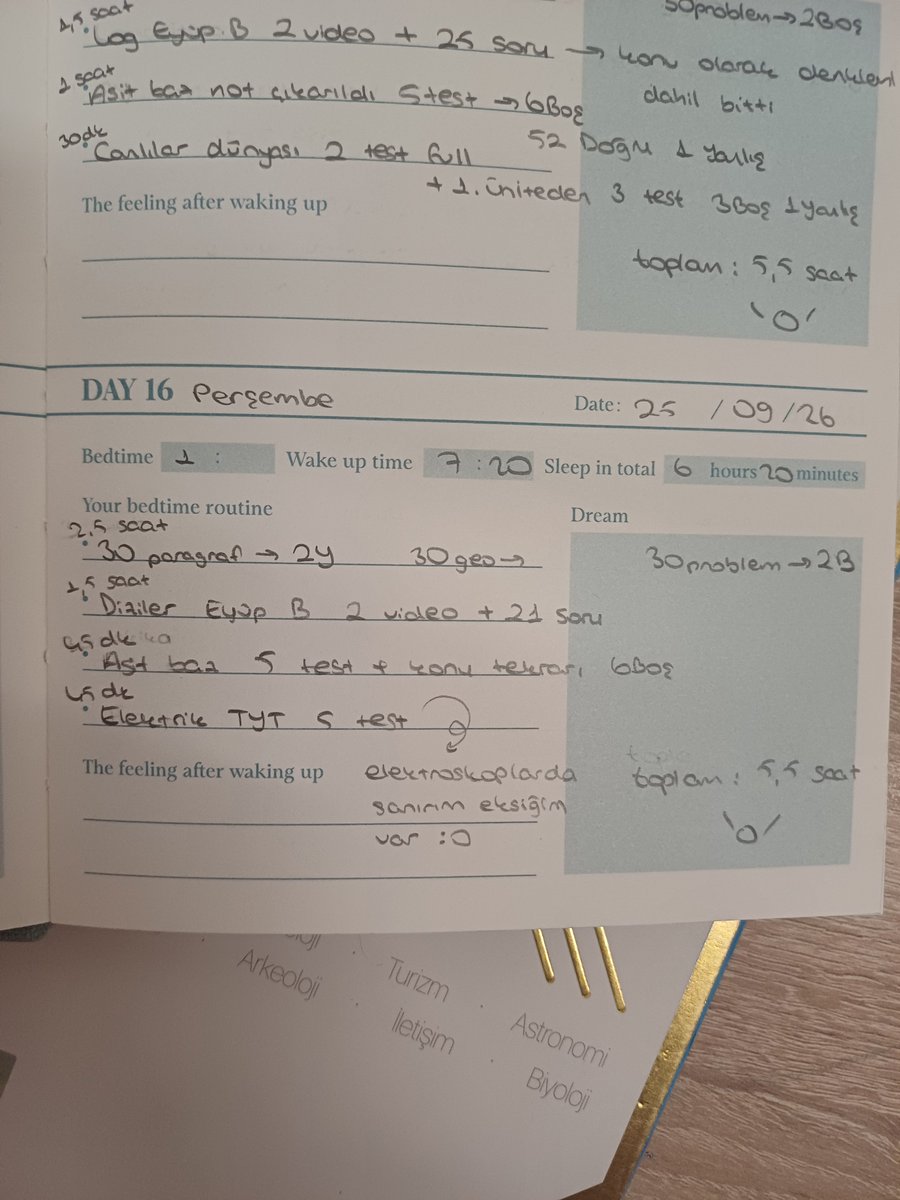 1,5 saat
30 problem → 2Boş
• Log Eyüp. B 2 video + 25 soru → konu olarak denklem
1 saat
dahil bitti
• Asit baz not çıkarıldı 5 test → 6Boş
30 dk
• Canlılar dünyası 2 test full
52 Doğru 1 Yanlış
+ 1. üniteden 3 test 3Boş 1 yanlış
The feeling after waking up
toplam : 5,5 saat
\o/
DAY 16 Perşembe
Date: 25 / 09 / 26
Bedtime 1 : Wake up time 7 : 20 Sleep in total 6 hours 20 minutes
Your bedtime routine
Dream
2,5 saat
• 30 paragraf → 2Y 30 geo →
30 problem → 2B
1,5 saat
• Diziler Eyüp B 2 video + 21 soru
45 dk
• Asit baz 5 test + konu tekrarı 6Boş
45 dk
• Elektrik TYT 5 test
The feeling after waking up
elektroskoplarda
sanırım eksiğim
var :O
toplam : 5,5 saat
\o/
Arkeoloji
Turizm
İletişim
Astronomi
Biyoloji